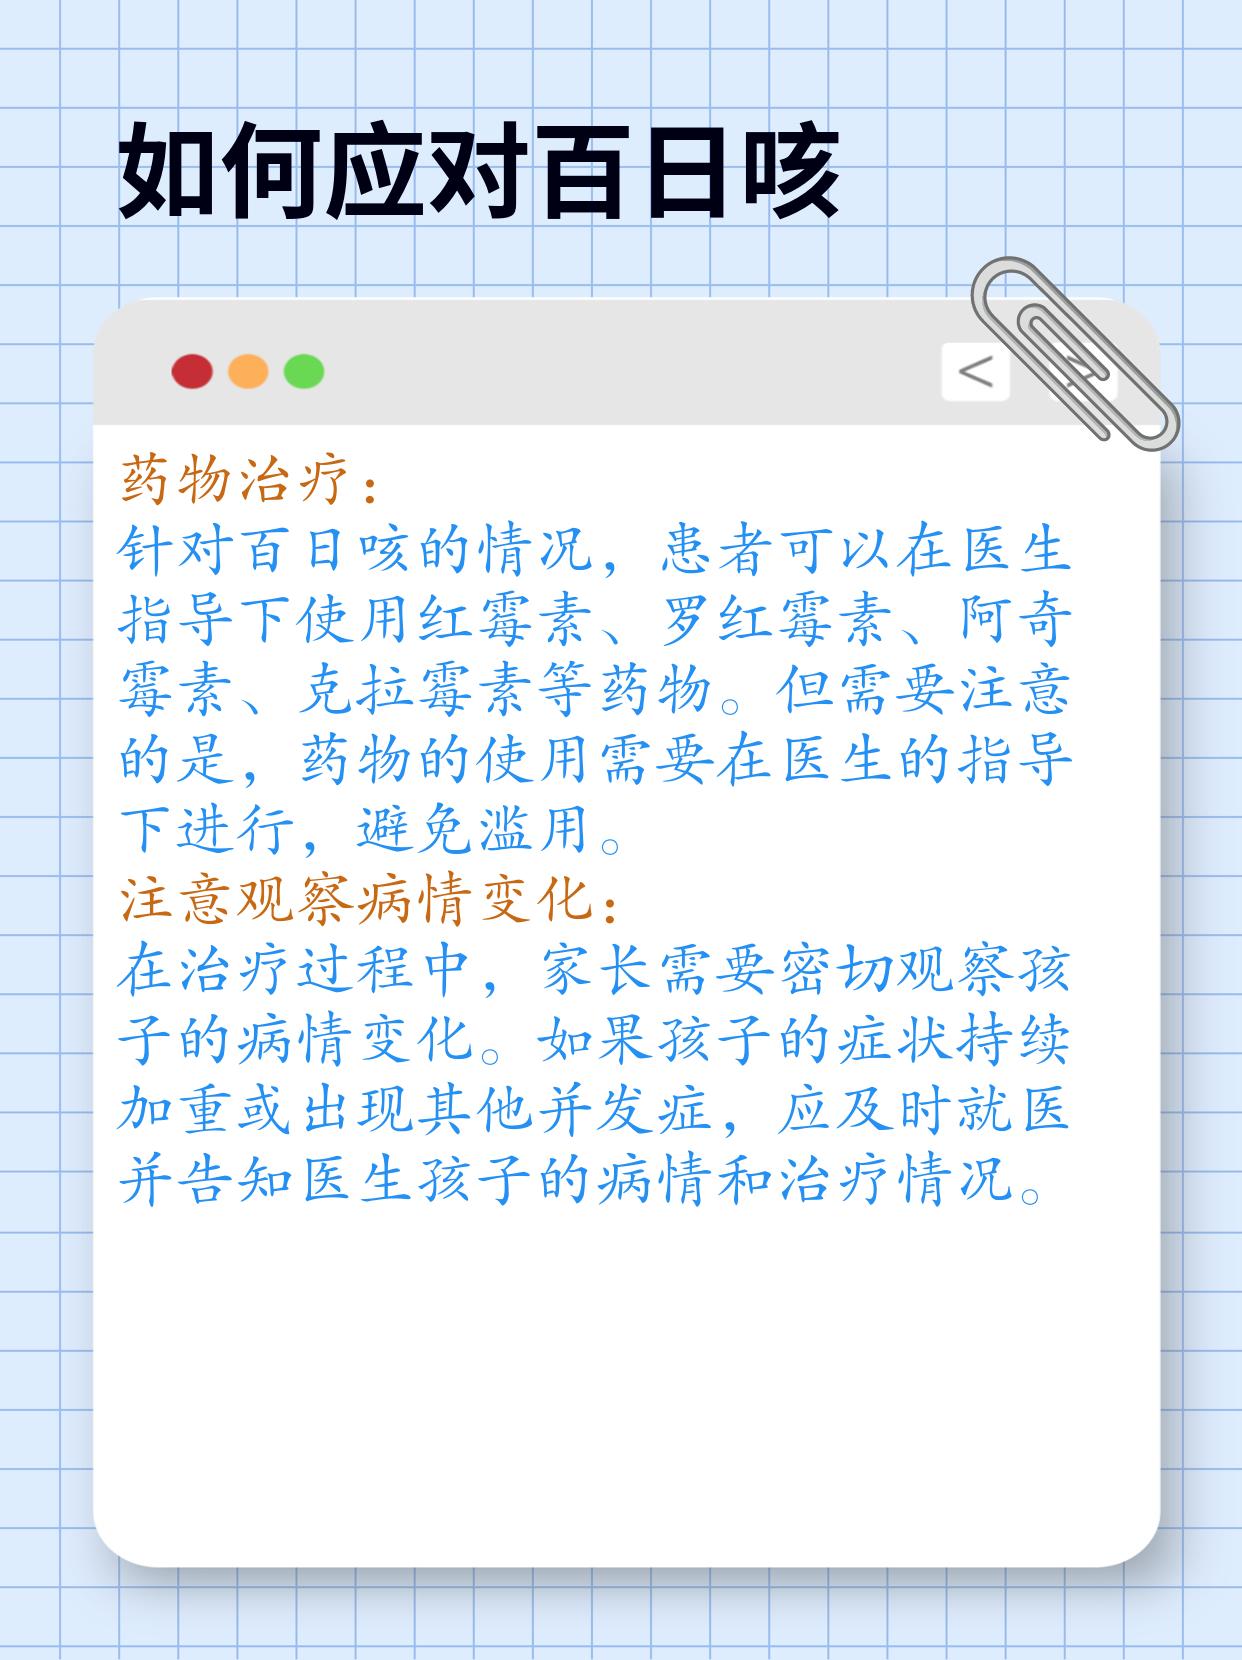 如何应对百日咳
药物治疗：
针对百日咳的情况，患者可以在医生
指导下使用红霉素、罗红霉素、阿奇
霉素、克拉霉素等药物。但需要注意
的是，药物的使用需要在医生的指导
下进行，避免滥用。
注意观察病情变化：
在治疗过程中，家长需要密切观察孩
子的病情变化。如果孩子的症状持续
加重或出现其他并发症，应及时就医
并告知医生孩子的病情和治疗情况。